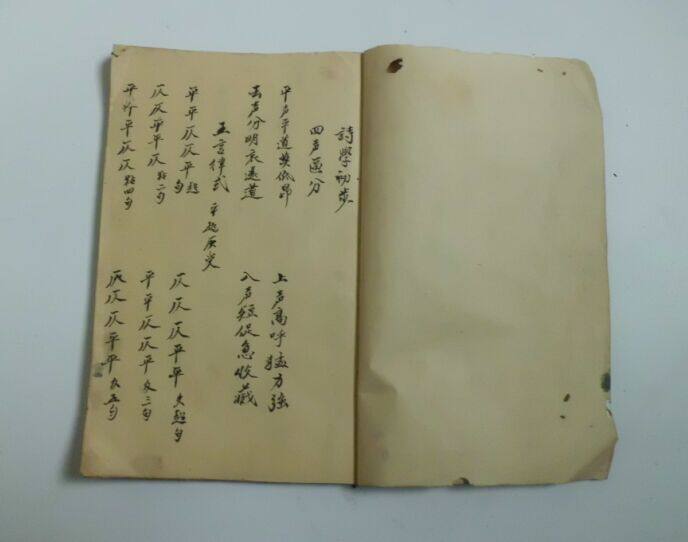 詩學初步
四声區分
平声平道莫低昂
上声高呼猛力强
去声分明哀遠道
入声短促急收藏
五言律式 平起
平平仄仄平 起句
仄仄仄平平
仄仄平平仄 二句
平平仄仄平 三句
平 平仄仄 四句
仄仄仄平平 五句